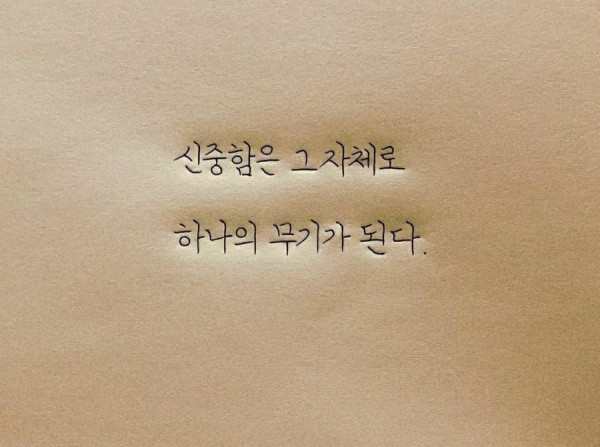 신중함은 그 자체로
하나의 무기가 된다.